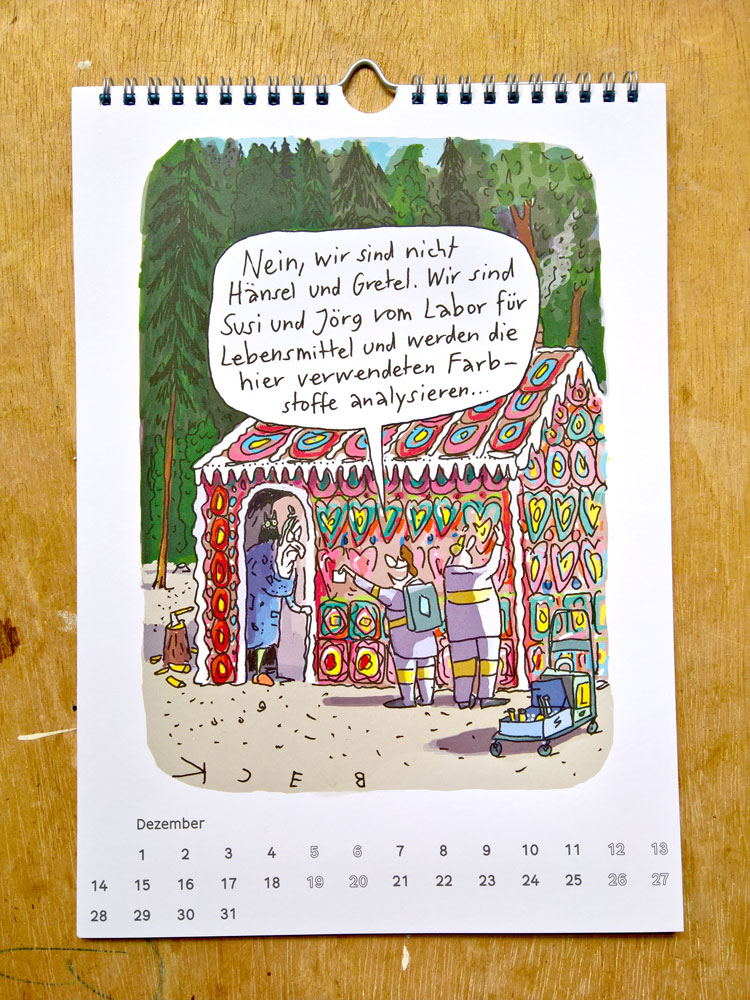 Nein, wir sind nicht
Hänsel und Gretel. Wir sind
Susi und Jörg vom Labor für
Lebensmittel und werden die
hier verwendeten Farb-
stoffe analysieren...
BECK
Dezember
1 2 3 4 5 6 7 8 9 10 11 12 13
14 15 16 17 18 19 20 21 22 23 24 25 26 27
28 29 30 31